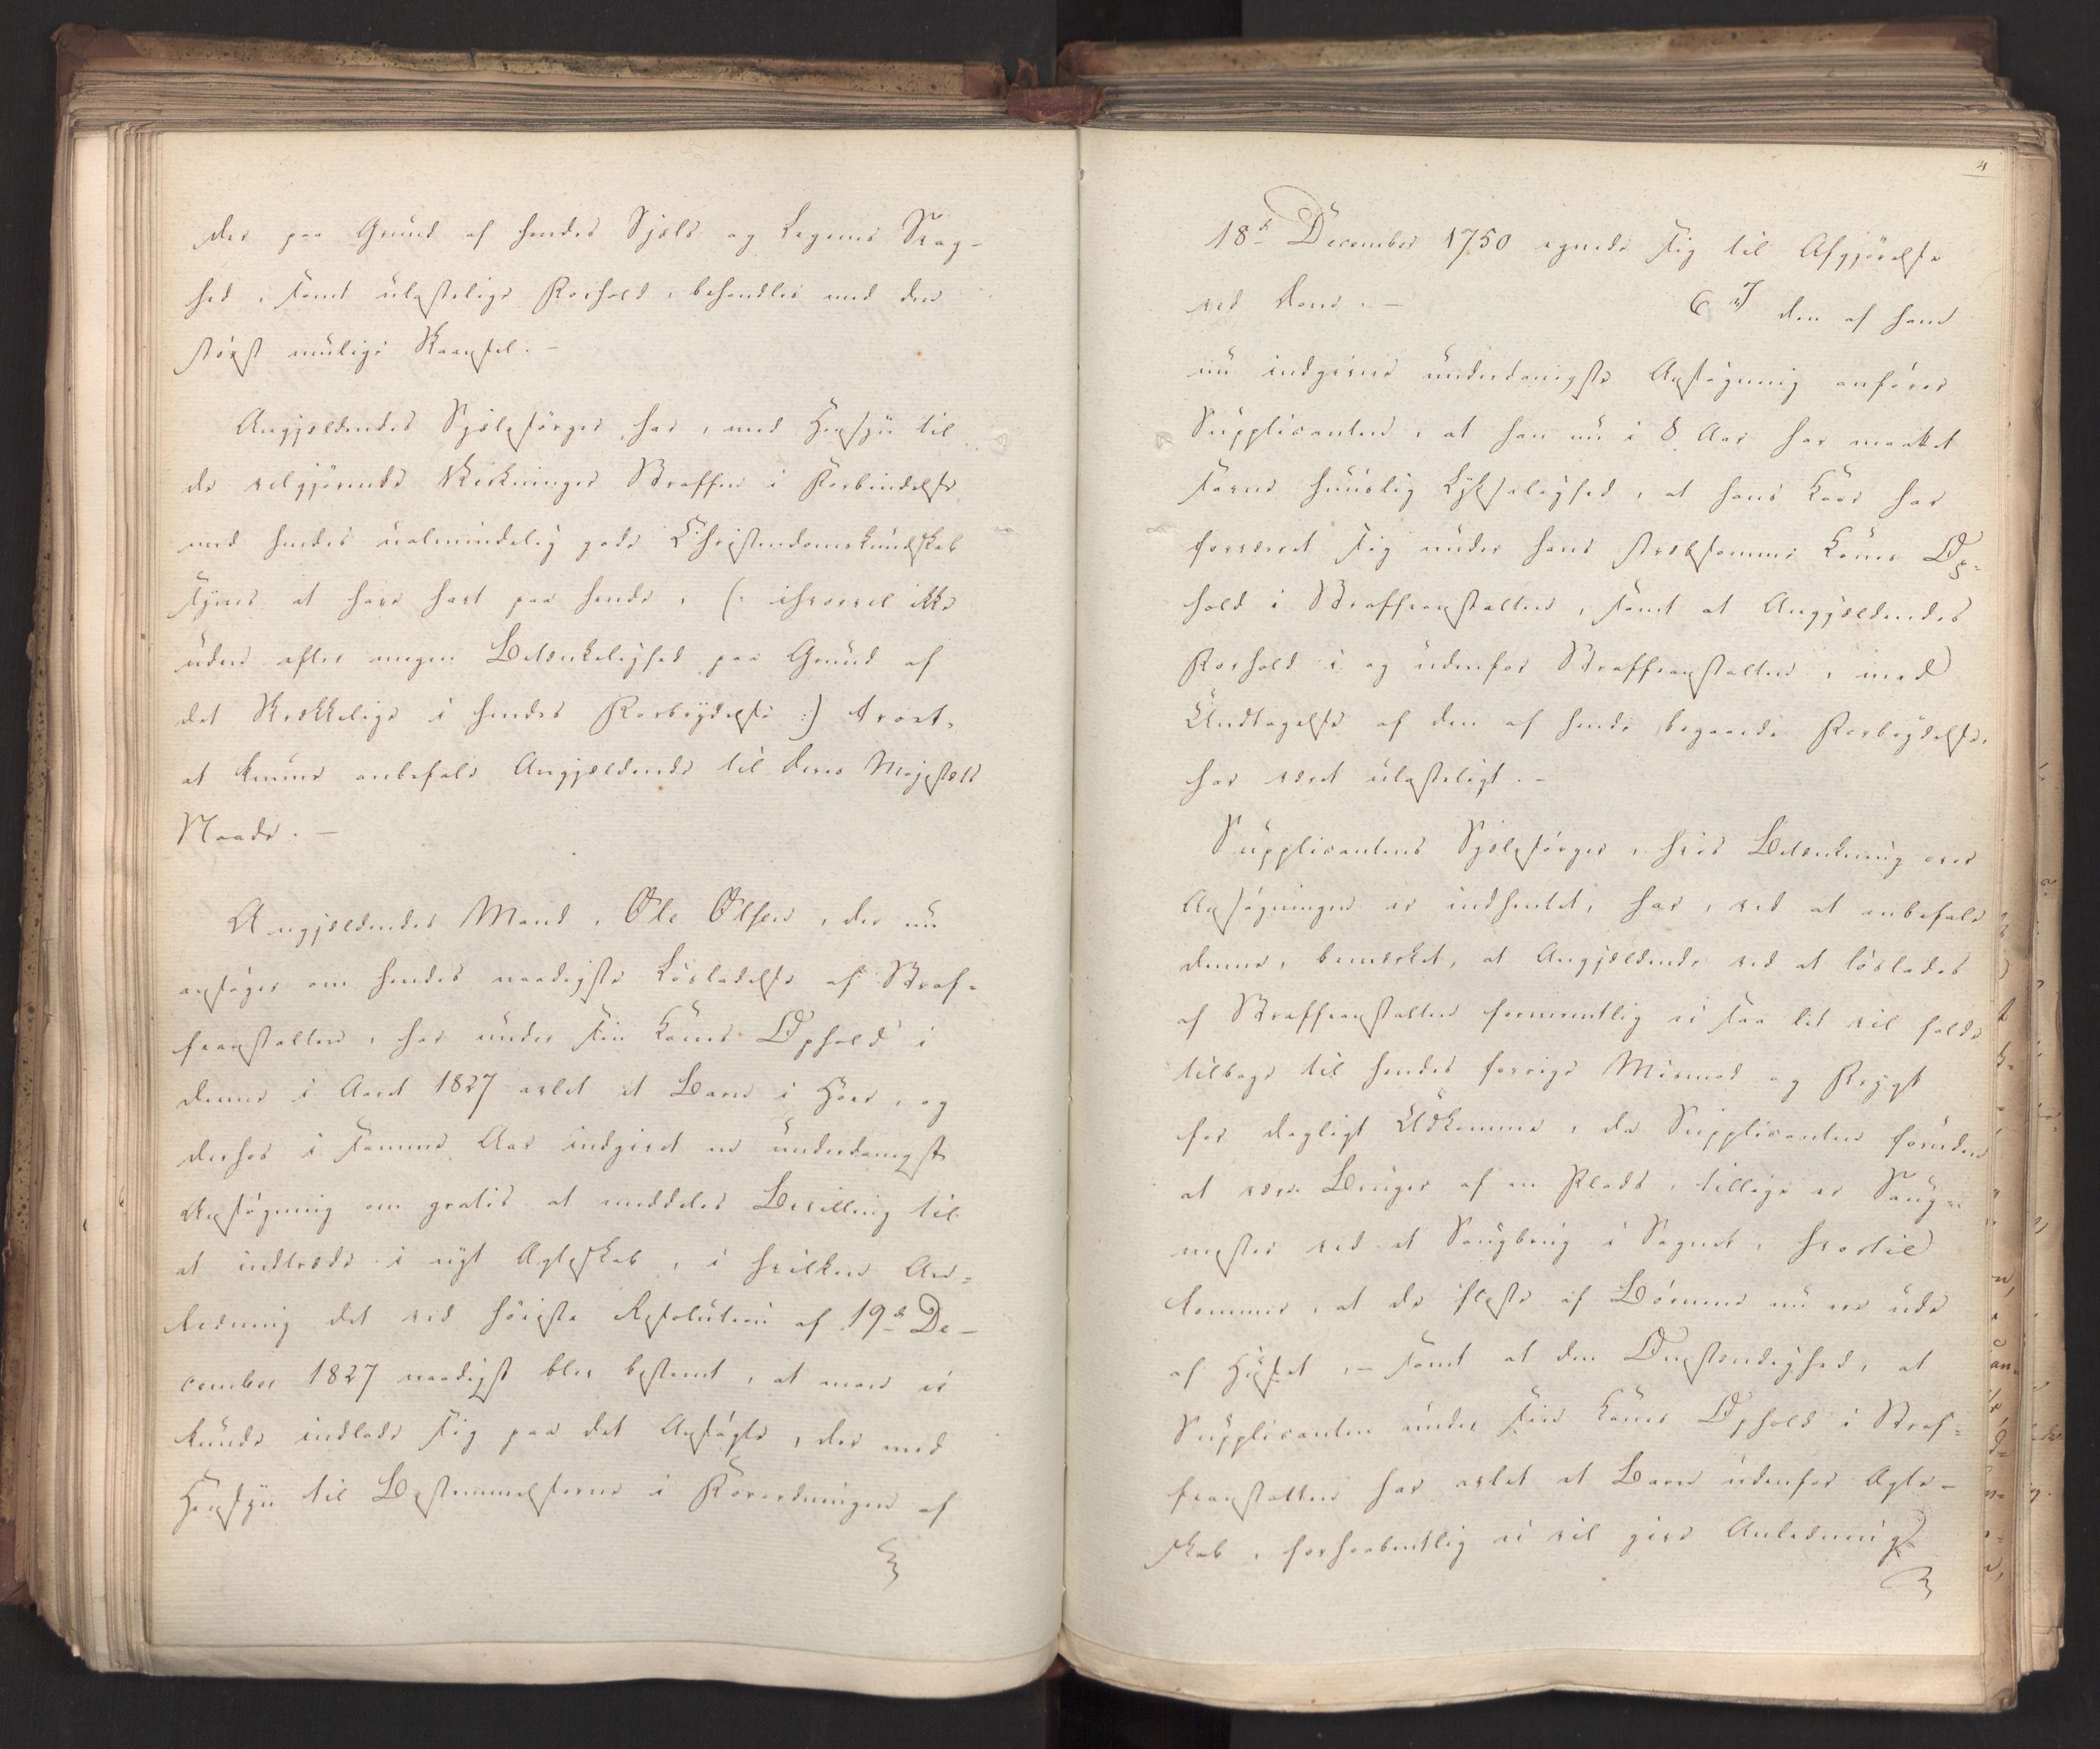 der paa Grund af hendes Sjæls og Legems Svag-
hed, samt ulasteligt Forhold, behandles med den
störst mulige Skaansel. -
Angjældendes Sjælesörger har, med Hensyn til
de velgjörende Virkninger Straffen i Forbindelse
med hendes ualmindelig gode Christendomskundskab
synes at have havt paa hende, (: ihvorvel ikke
uden efter nogen Betænkelighed paa Grund af
det Skrækkelige i hendes Forbrydelse :) troet,
at kunne anbefale Angjældende til Deres Majestæts
Naade. -
Angjældendes Mand, Ole Olsen, der nu
ansöger om hendes naadigste Lösladelse af Straf-
feanstalten, har under sin Kones Ophold i
denne i Aaret 1827 avlet et Barn i Hoer, og
derhos i samme Aar indgivet en underdanigst
Ansögning om gratis at meddeles Bevilling til
at indtræde i nyt Ægteskab, i hvilken An-
ledning det ved höieste Resolution af 19de De-
cember 1827 naadigst blev bestemt, at man ei
kunde indlade sig paa det Ansögte, der med
Hensyn til Bestemmelserne i Forordningen af
4
18de December 1750 egnede sig til Afgjörelse
ved Dom. - I den af ham
nu indgivne underdanigste Ansögning anförer
Supplicanten, at han nu i 8 Aar har maattet
savne huuslig Lyksalighed, at hans Kaar har
forværret sig under hans stræbsomme Kones Op-
hold i Straffeanstalten, samt at Angjældendes
Forhold i og udenfor Straffeanstalten, med
Undtagelse af den af hende begaaede Forbrydelse,
har været ulasteligt. -
Supplicantens Sjælesörger, hvis Betænkning over
Ansögningen er indhentet, har, ved at anbefale
denne, bemærket, at Angjældende ved at löslades
af Straffeanstalten formeentlig ei saa let vil falde
tilbage til hendes forrige Mismod og Frygt
for dagligt Udkomme, da Supplicanten foruden
at være Bruger af en Plads, tillige er Saug-
mester ved et Saugbrug i Sognet, hvortil
kommer, at de fleste af Börnene nu ere ude
af Huset, - samt at den Omstændighed, at
Supplicanten under sin Kones Ophold i Straf-
feanstalten har avlet et Barn udenfor Ægte-
skab, forhaabentlig ei vil give Anledning